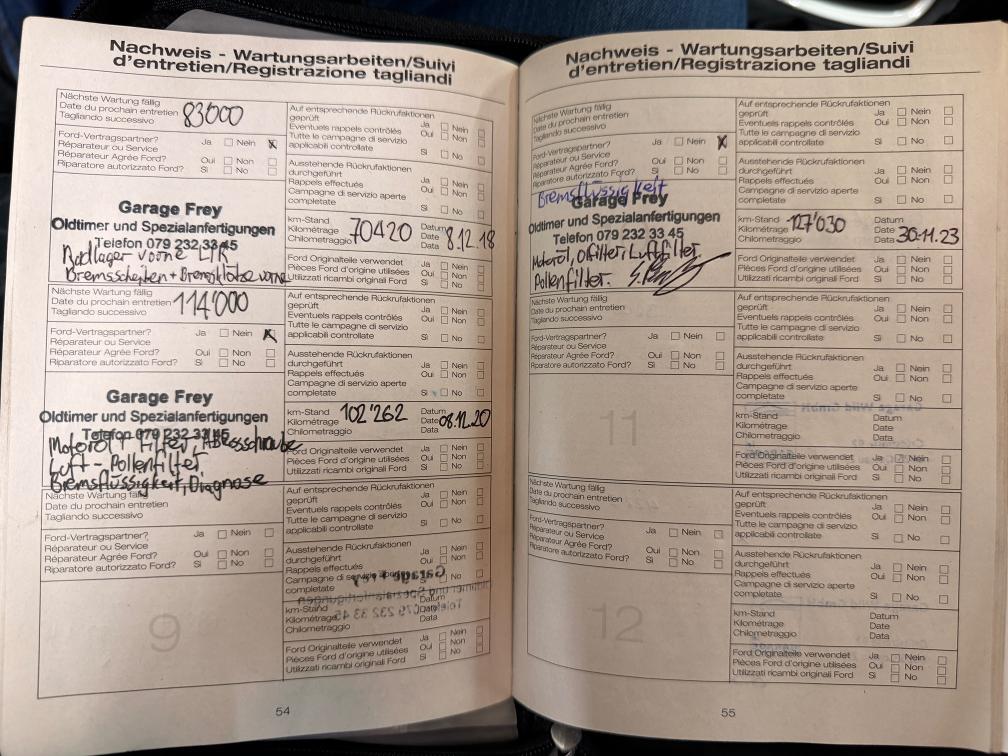 Nachweis - Wartungsarbeiten/Suivi
d'entretien/Registrazione tagliandi
Nächste Wartung fällig
Date du prochain entretien
Tagliando successivo
83000
Ford-Vertragspartner?
Réparateur ou Service
Réparateur Agrée Ford?
Riparatore autorizzato Ford?
Ja Nein
Oui Non
Si No
Garage Frey
Oldtimer und Spezialanfertigungen
Telefon 079 232 33 45
Radlager vorne L+R
Bremsscheiben + Bremsklötze vorne
Auf entsprechende Rückrufaktionen
geprüft
Eventuels rappels contrôlés
Tutte le campagne di servizio
applicabili controllate
Ja Nein
Oui Non
Si No
Ausstehende Rückrufaktionen
durchgeführt
Rappels effectués
Campagne di servizio aperte
completate
Ja Nein
Oui Non
Si No
km-Stand
Kilométrage
Chilometraggio
70420
Datum
Date
Data
8.12.18
Ford Originalteile verwendet
Pièces Ford d'origine utilisées
Utilizzati ricambi originali Ford
Ja Nein
Oui Non
Si No
Nächste Wartung fällig
Date du prochain entretien
Tagliando successivo
114'000
Ford-Vertragspartner?
Réparateur ou Service
Réparateur Agrée Ford?
Riparatore autorizzato Ford?
Ja Nein
Oui Non
Si No
Garage Frey
Oldtimer und Spezialanfertigungen
Telefon 079 232 33 45
Motoröl + Filter, Ablassschraube
Luft - Pollenfilter
Bremsflüssigkeit, Diagnose
Auf entsprechende Rückrufaktionen
geprüft
Eventuels rappels contrôlés
Tutte le campagne di servizio
applicabili controllate
Ja Nein
Oui Non
Si No
Ausstehende Rückrufaktionen
durchgeführt
Rappels effectués
Campagne di servizio aperte
completate
Ja Nein
Oui Non
Si No
km-Stand
Kilométrage
Chilometraggio
102'262
Datum
Date
Data
08.12.20
Ford Originalteile verwendet
Pièces Ford d'origine utilisées
Utilizzati ricambi originali Ford
Ja Nein
Oui Non
Si No
Nächste Wartung fällig
Date du prochain entretien
Tagliando successivo
Ford-Vertragspartner?
Réparateur ou Service
Réparateur Agrée Ford?
Riparatore autorizzato Ford?
Ja Nein
Oui Non
Si No
9
Auf entsprechende Rückrufaktionen
geprüft
Eventuels rappels contrôlés
Tutte le campagne di servizio
applicabili controllate
Ja Nein
Oui Non
Si No
Ausstehende Rückrufaktionen
durchgeführt
Rappels effectués
Campagne di servizio aperte
completate
Ja Nein
Oui Non
Si No
km-Stand
Kilométrage
Chilometraggio
Datum
Date
Data
Ford Originalteile verwendet
Pièces Ford d'origine utilisées
Utilizzati ricambi originali Ford
Ja Nein
Oui Non
Si No
54
Nachweis - Wartungsarbeiten/Suivi
d'entretien/Registrazione tagliandi
Nächste Wartung fällig
Date du prochain entretien
Tagliando successivo
Ford-Vertragspartner?
Réparateur ou Service
Réparateur Agrée Ford?
Riparatore autorizzato Ford?
Ja Nein
Oui Non
Si No
Bremsflüssigkeit
Garage Frey
Oldtimer und Spezialanfertigungen
Telefon 079 232 33 45
Motoröl, Ölfilter, Luftfilter
Pollenfilter.
Auf entsprechende Rückrufaktionen
geprüft
Eventuels rappels contrôlés
Tutte le campagne di servizio
applicabili controllate
Ja Nein
Oui Non
Si No
Ausstehende Rückrufaktionen
durchgeführt
Rappels effectués
Campagne di servizio aperte
completate
Ja Nein
Oui Non
Si No
km-Stand
Kilométrage
Chilometraggio
127'030
Datum
Date
Data
30.11.23
Ford Originalteile verwendet
Pièces Ford d'origine utilisées
Utilizzati ricambi originali Ford
Ja Nein
Oui Non
Si No
Nächste Wartung fällig
Date du prochain entretien
Tagliando successivo
Ford-Vertragspartner?
Réparateur ou Service
Réparateur Agrée Ford?
Riparatore autorizzato Ford?
Ja Nein
Oui Non
Si No
11
Auf entsprechende Rückrufaktionen
geprüft
Eventuels rappels contrôlés
Tutte le campagne di servizio
applicabili controllate
Ja Nein
Oui Non
Si No
Ausstehende Rückrufaktionen
durchgeführt
Rappels effectués
Campagne di servizio aperte
completate
Ja Nein
Oui Non
Si No
km-Stand
Kilométrage
Chilometraggio
Datum
Date
Data
Ford Originalteile verwendet
Pièces Ford d'origine utilisées
Utilizzati ricambi originali Ford
Ja Nein
Oui Non
Si No
Nächste Wartung fällig
Date du prochain entretien
Tagliando successivo
Ford-Vertragspartner?
Réparateur ou Service
Réparateur Agrée Ford?
Riparatore autorizzato Ford?
Ja Nein
Oui Non
Si No
12
Auf entsprechende Rückrufaktionen
geprüft
Eventuels rappels contrôlés
Tutte le campagne di servizio
applicabili controllate
Ja Nein
Oui Non
Si No
Ausstehende Rückrufaktionen
durchgeführt
Rappels effectués
Campagne di servizio aperte
completate
Ja Nein
Oui Non
Si No
km-Stand
Kilométrage
Chilometraggio
Datum
Date
Data
Ford Originalteile verwendet
Pièces Ford d'origine utilisées
Utilizzati ricambi originali Ford
Ja Nein
Oui Non
Si No
55